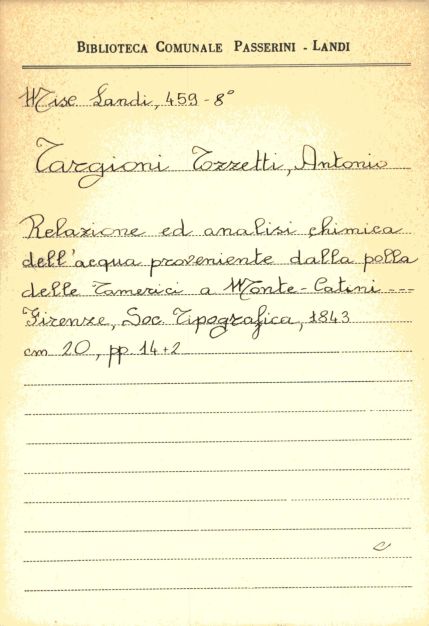 BIBLIOTECA COMUNALE PASSERINI - LANDI
Misc Landi, 459-8°
Targioni Tozzetti, Antonio
Relazione ed analisi chimica
dell'acqua proveniente dalla polla
delle Tamerici a Monte-Catini ---
Firenze, Soc Tipografica, 1843
cm 20, pp 14+2
c